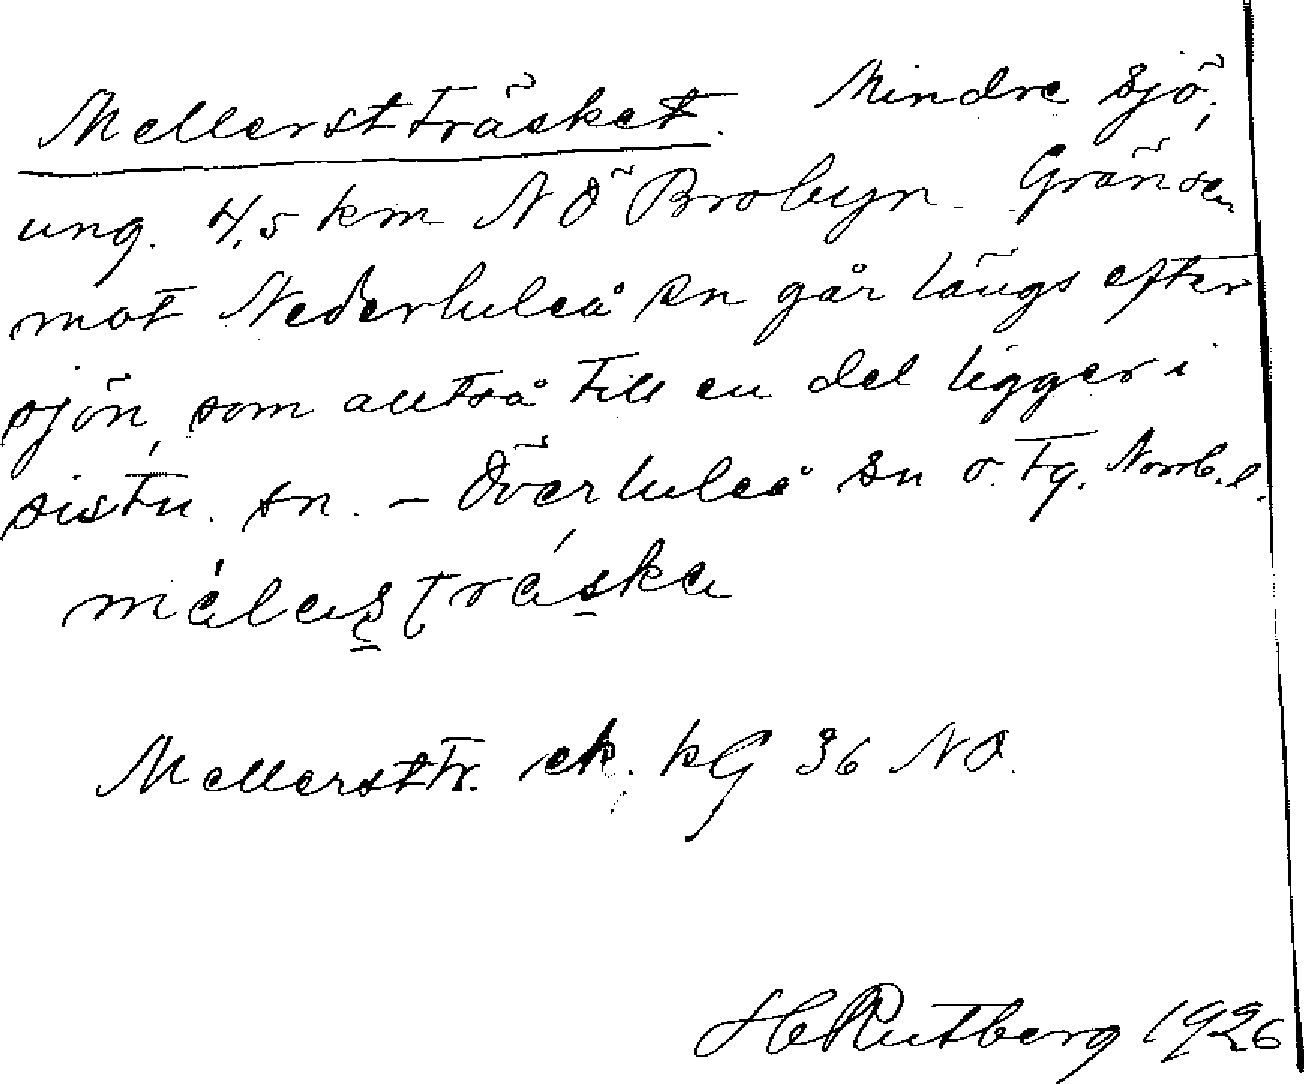 Mellerstträsket. Mindre sjö,
ung. 4,5 km NÖ Brobyn. Gränsen
mot Nederluleå sn går längs efter
sjön, som alltså till en del ligger i
sistn. sn. – Överluleå sn o. tg. Norrb. l.
Mellersttr. ek. kG 36 NÖ.
HRutberg 1926